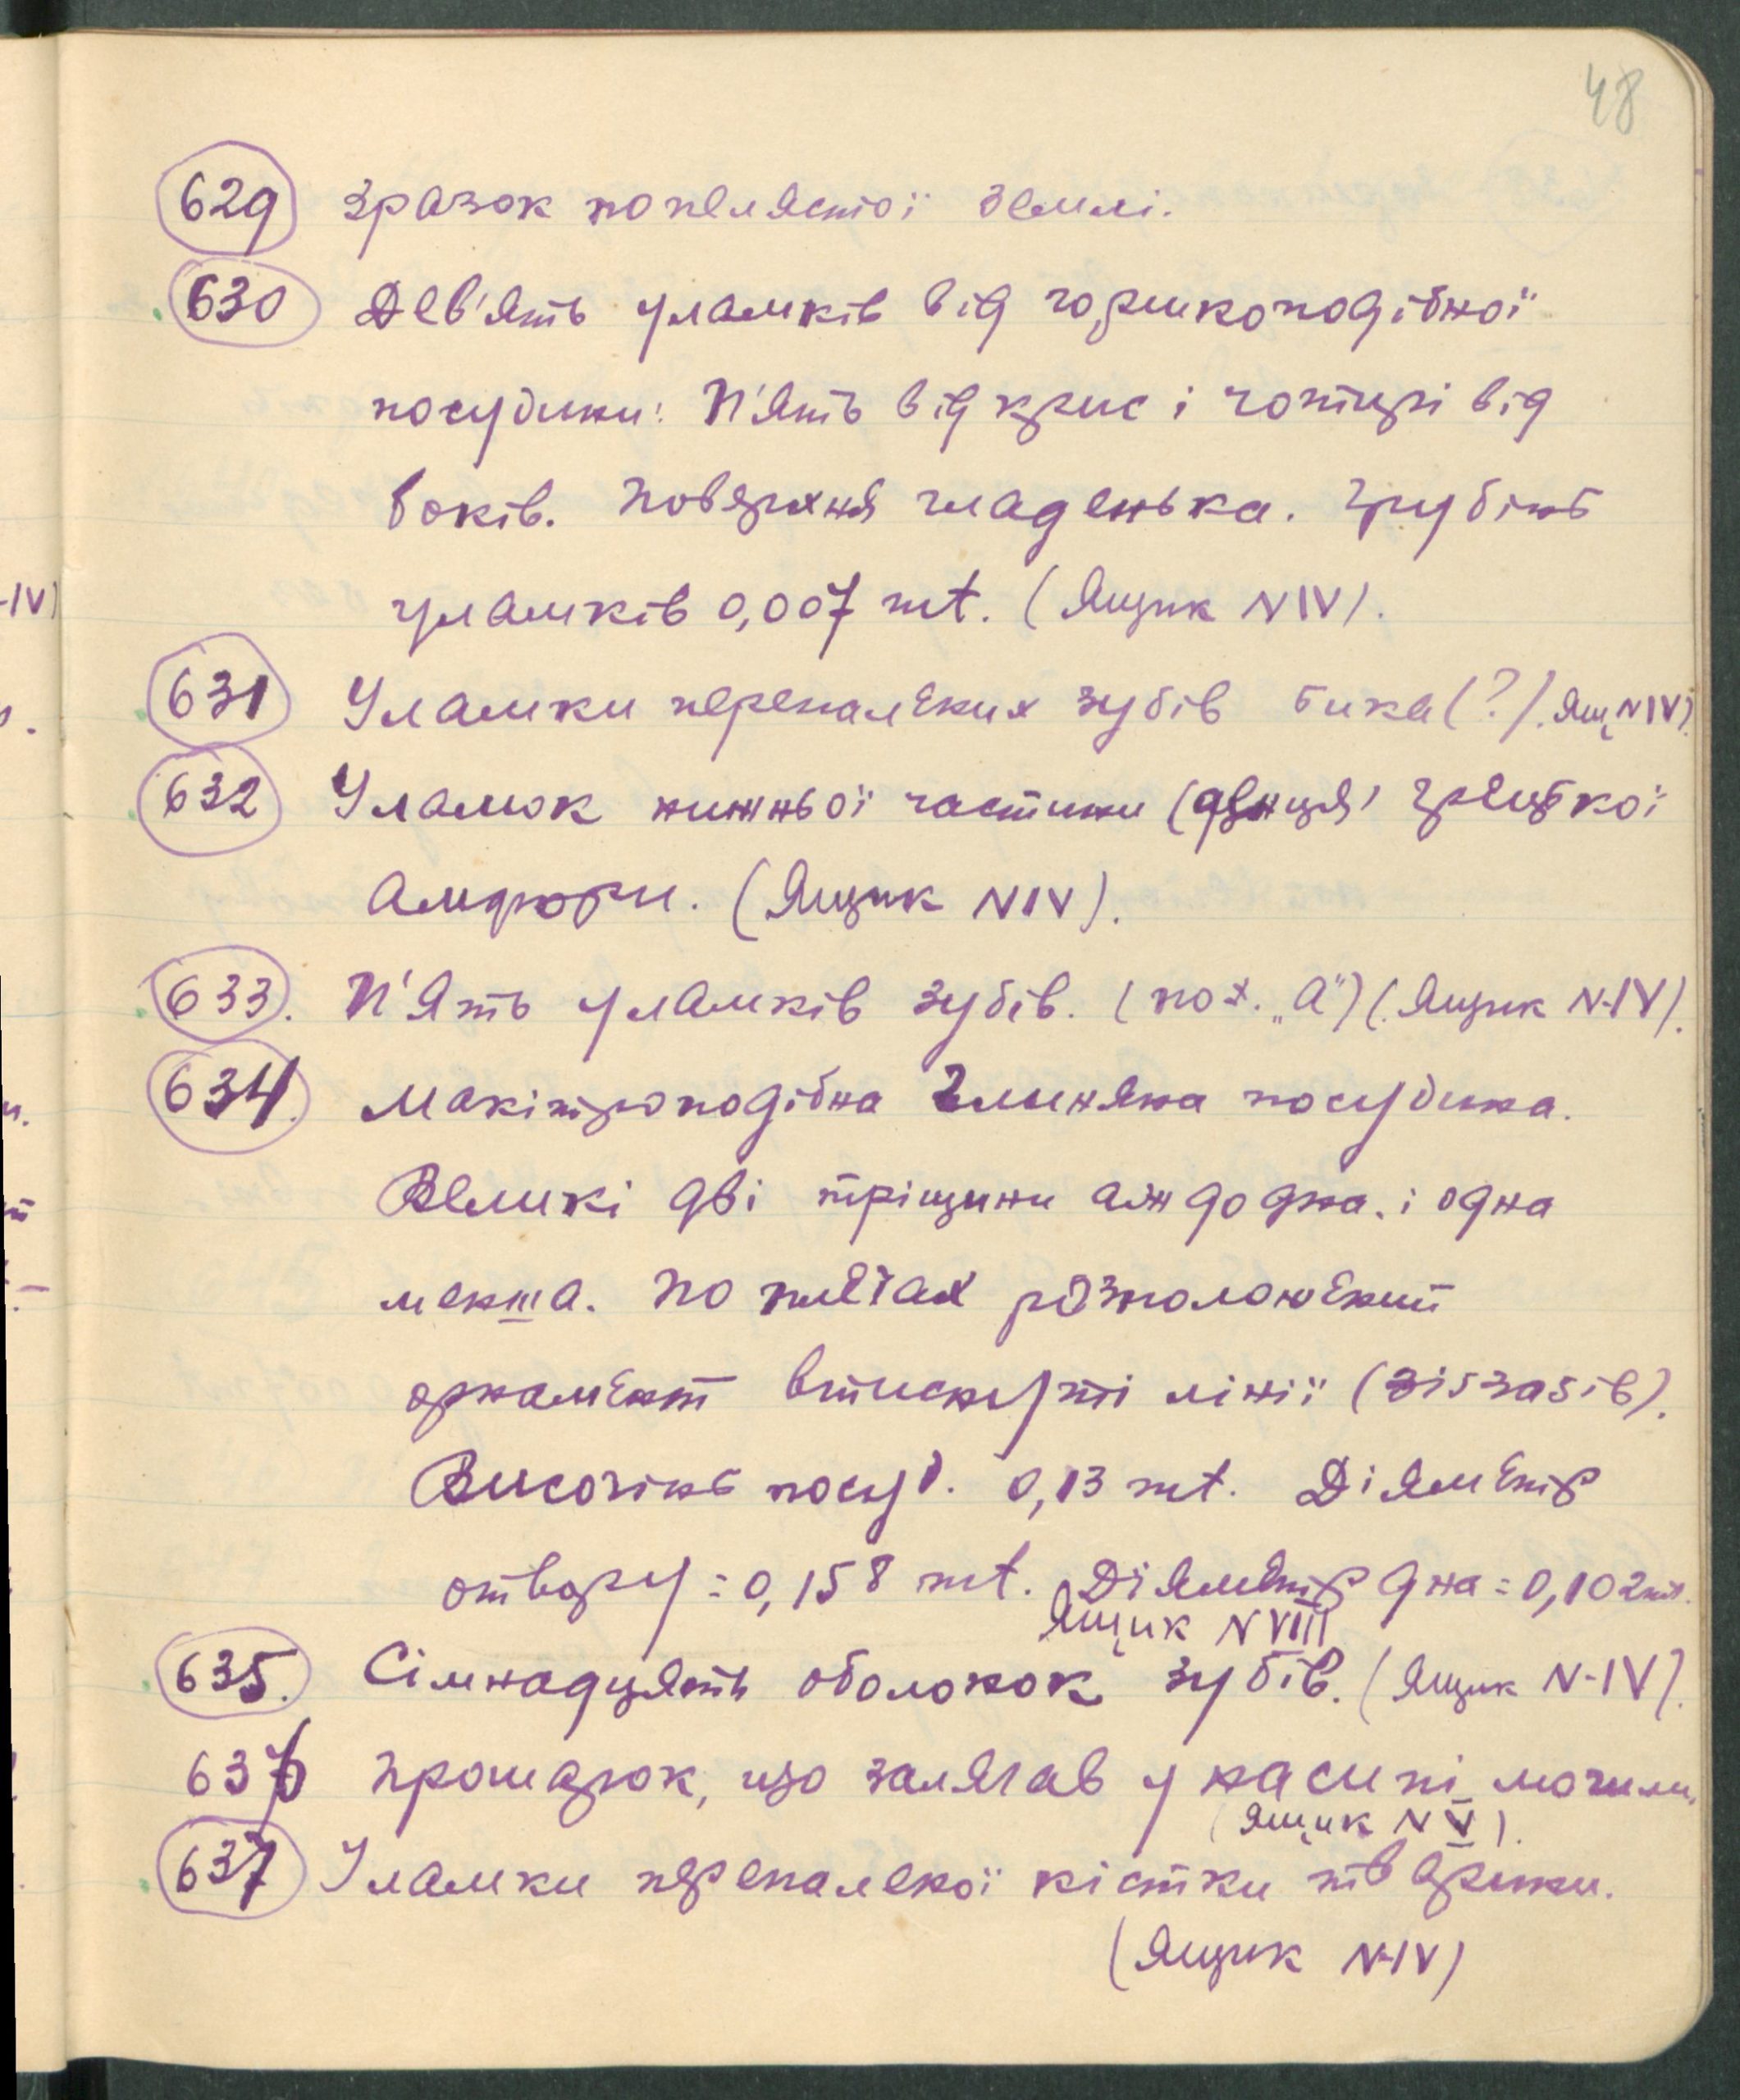 48
629 Зразок попелястої землі.
630 Дев'ять уламків від горшкоподібної
посудини: П'ять від крис і чотирі від
боків. Поверхня гладенька. Грубінь
уламків 0,007 mt. (Ящик N IV).
631 Уламки перепалених зубів бика (?). Ящ. N IV)
632 Уламок нижньої частини (денця) грецької
амфори. (Ящик N IV).
633. П'ять уламків зубів. (пох. „А") (Ящик N-IV).
634. Макітроподібна глиняна посудина.
Великі дві тріщини аж до дна. і одна
менша. По плечах розположений
орнамент втиснуті лінії (зіґзаґів).
Височінь посуд. 0,13 mt. Діяметр
отвору = 0,158 mt. Діяметр дна = 0,102 mt.
Ящик N VIII
635. Сімнадцять оболонок зубів. (Ящик N-IV).
636 Прошарок, що залягав у насипі могили.
(Ящик N V).
637 Уламки перепаленої кістки тварини.
(Ящик N-IV)
-IV)